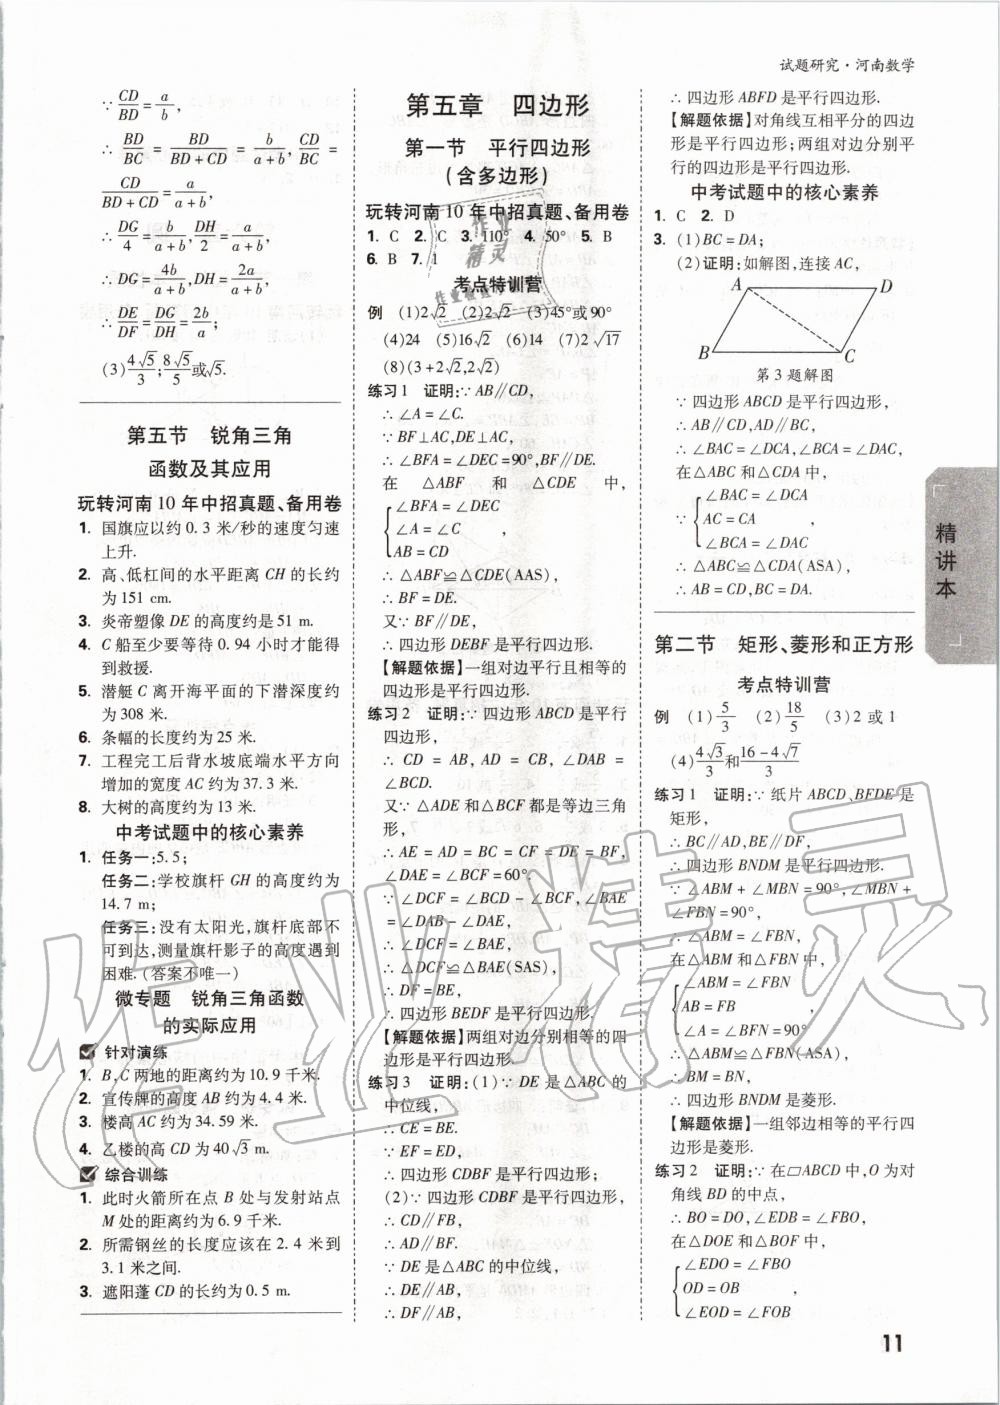 试题研究·河南数学
∵CD/BD=a/b,
∴BD/BC=BD/(BD+CD)=b/(a+b),CD/BC=
CD/(BD+CD)=a/(a+b),
∴DG/4=b/(a+b),DH/2=a/(a+b),
∴DG=4b/(a+b),DH=2a/(a+b),
∴DE/DF=DG/DH=2b/a;
(3)4√5/3;8√5/5或√5.
第五节 锐角三角
函数及其应用
玩转河南10年中招真题、备用卷
1. 国旗应以约0.3米/秒的速度匀速
上升.
2. 高、低杠间的水平距离CH的长约
为151 cm.
3. 炎帝塑像DE的高度约是51 m.
4. C船至少要等待0.94小时才能得
到救援.
5. 潜艇C离开海平面的下潜深度约
为308米.
6. 条幅的长度约为25米.
7. 工程完工后背水坡底端水平方向
增加的宽度AC约为37.3米.
8. 大树的高度约为13米.
中考试题中的核心素养
1. 任务一:5.5;
任务二:学校旗杆GH的高度约为
14.7 m;
任务三:没有太阳光,旗杆底部不
可到达,测量旗杆影子的高度遇到
困难.(答案不唯一)
微专题 锐角三角函数
的实际应用
针对演练
1. B,C两地的距离约为10.9千米.
2. 宣传牌的高度AB约为4.4米.
3. 楼高AC约为34.59米.
4. 乙楼的高CD为40√3 m.
综合训练
1. 此时火箭所在点B处与发射站点
M处的距离约为6.9千米.
2. 所需钢丝的长度应该在2.4米到
3.1米之间.
3. 遮阳蓬CD的长约为0.5 m.
第五章 四边形
第一节 平行四边形
(含多边形)
玩转河南10年中招真题、备用卷
1. C 2. C 3. 110° 4. 50° 5. B
6. B 7. 1
考点特训营
例 (1)2√2 (2)2√2 (3)45°或90°
(4)24 (5)16√2 (6)14 (7)2√17
(8)(3+2√2,2√2)
练习1 证明:∵AB∥CD,
∴∠A=∠C.
∵BF⊥AC,DE⊥AC,
∴∠BFA=∠DEC=90°,BF∥DE.
在△ABF和△CDE中,
∠BFA=∠DEC
∠A=∠C ,
AB=CD
∴△ABF≌△CDE(AAS),
∴BF=DE.
又∵BF∥DE,
∴四边形DEBF是平行四边形.
【解题依据】一组对边平行且相等的
四边形是平行四边形.
练习2 证明:∵四边形ABCD是平行
四边形,
∴CD=AB,AD=CB,∠DAB=
∠BCD.
又∵△ADE和△BCF都是等边三角
形,
∴AE=AD=BC=CF=DE=BF,
∠DAE=∠BCF=60°.
∵∠DCF=∠BCD-∠BCF,∠BAE
=∠DAB-∠DAE,
∴∠DCF=∠BAE,
∴△DCF≌△BAE(SAS),
∴DF=BE,
∴四边形BEDF是平行四边形.
【解题依据】两组对边分别相等的四
边形是平行四边形.
练习3 证明:(1)∵DE是△ABC的
中位线,
∴CE=BE.
∵EF=ED,
∴四边形CDBF是平行四边形;
(2)∵四边形CDBF是平行四边形,
∴CD∥FB,
∴AD∥BF.
∵DE是△ABC的中位线,
∴DE∥AB,
∴DF∥AB,
∴四边形ABFD是平行四边形.
【解题依据】对角线互相平分的四边
形是平行四边形;两组对边分别平
行的四边形是平行四边形.
中考试题中的核心素养
1. C 2. D
3. (1)BC=DA;
(2)证明:如解图,连接AC,
A
D
B
C
第3题解图
∵四边形ABCD是平行四边形,
∴AB∥CD,AD∥BC,
∴∠BAC=∠DCA,∠BCA=∠DAC,
在△ABC和△CDA中,
∠BAC=∠DCA
∵ AC=CA ,
∠BCA=∠DAC
∴△ABC≌△CDA(ASA),
∴AB=CD,BC=DA.
第二节 矩形、菱形和正方形
考点特训营
例 (1)5/3 (2)18/5 (3)2或1
(4)4√3/3和(16-4√7)/3
练习1 证明:∵纸片ABCD、BFDE是
矩形,
∴BC∥AD,BE∥DF,
∴四边形BNDM是平行四边形.
∵∠ABM+∠MBN=90°,∠MBN+
∠FBN=90°,
∴∠ABM=∠FBN,
在△ABM和△FBN中,
∠ABM=∠FBN
AB=FB ,
∠A=∠BFN=90°
∴△ABM≌△FBN(ASA),
∴BM=BN,
∴四边形BNDM是菱形.
【解题依据】一组邻边相等的平行四
边形是菱形.
练习2 证明:∵在▱ABCD中,O为对
角线BD的中点,
∴BO=DO,∠EDB=∠FBO,
在△DOE和△BOF中,
∠EDO=∠FBO
OD=OB ,
∠EOD=∠FOB
精讲本
11
作业精灵
作业精灵